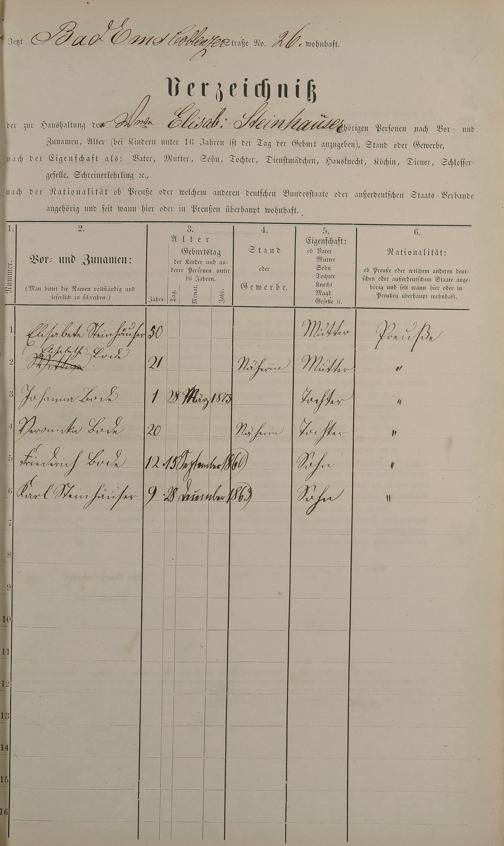 Jetzt Bad Ems Coblenzer Straße No. 26. wohnhaft.
Verzeichniß
der zur Haushaltung der Elisab: Steinhäuser gehörigen Personen nach Vor- und
Zunamen, Alter (bei Kindern unter 16 Jahren ist der Tag der Geburt anzugeben), Stand oder Gewerbe,
nach der Eigenschaft als: Vater, Mutter, Sohn, Tochter, Dienstmädchen, Hausknecht, Köchin, Diener, Schlosser-
geselle, Schreinerlehrling ꝛc.,
nach der Nationalität ob Preuße oder welchem anderen deutschen Bundesstaate oder außerdeutschen Staats-Verbande
angehörig und seit wann hier oder in Preußen überhaupt wohnhaft.
1. 2. 3. 4. 5. 6.
Nummer. Vor- und Zunamen: Alter Stand oder Gewerbe. Eigenschaft: Nationalität:
(Man bittet die Namen vollständig und
leserlich zu schreiben.)
Geburtstag
der Kinder und an-
derer Personen unter
16 Jahren.
Jahre Tag. Monat. Jahr.
ob Vater
Mutter
Sohn
Tochter
Knecht
Magd
Geselle ꝛc.
ob Preuße oder welchem anderen deut-
schen oder außerdeutschen Staate ange-
hörig und seit wann hier oder in
Preußen überhaupt wohnhaft.
1 Elisabete Steinhäuser 50 Mutter Preuße
2 Elisabeth Bode 21 Näherin Mutter "
3 Johanna Bode 1 28 März 1873 Tochter "
4 Veronika Bode 20 Näherin Tochter "
5 Friederich Bode 12 15 September Sohn "
6 Karl Steinhäuser 9 28 Dezember 1863 Sohn "
7
8
9
10
11
12
13
14
15
16